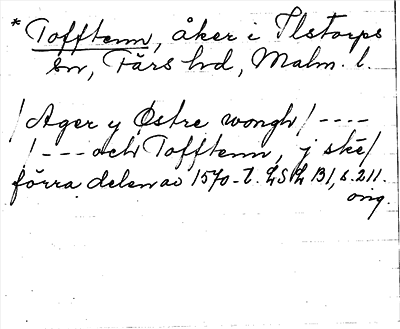 * Tofftenn, åker i Ilstorps
sn, Färs hd, Malm. l.
/Ager y Østre wongh/----
/---och Tofftenn, j ske/
förra delen av 1570-t. LSL B1, s. 211.
orig.